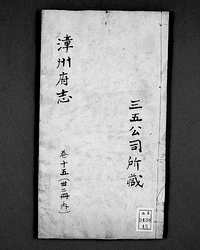 三五公司所藏
漳州府志
卷十五（廿二冊內）